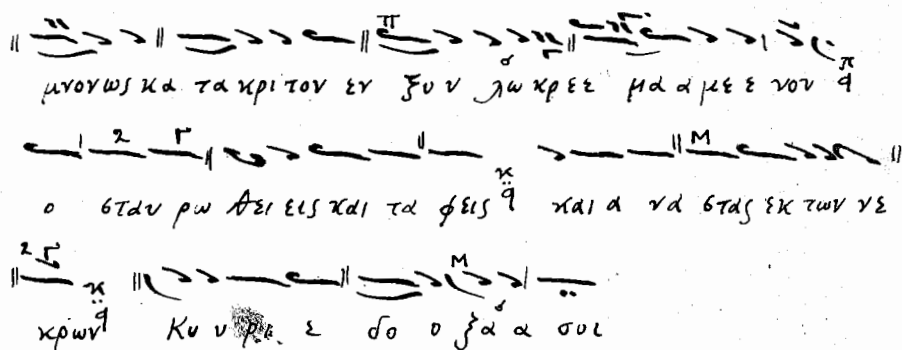 μνονως κα τα κριτον εν ξυυ λω κρεε μα α με ε νου
ο σταυ ρω θει εις και τα φεις και α να στας εκ των νε
κρων Κυ υ ρι ε δο ο ξα α σοι